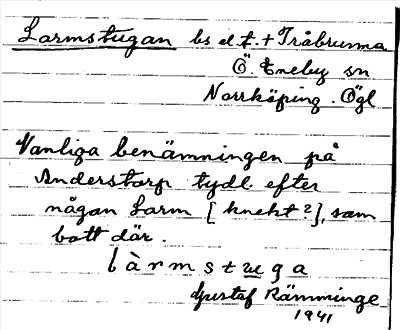 Larmstugan bs el t. + Tråbrunna
Ö. Eneby sn
Norrköping. Ögl
Vanliga benämningen på
Anderstorp tydl. efter
någon Larm [knekt?], som
bott där.
làrmstuga
Gustaf Rämminge
1941